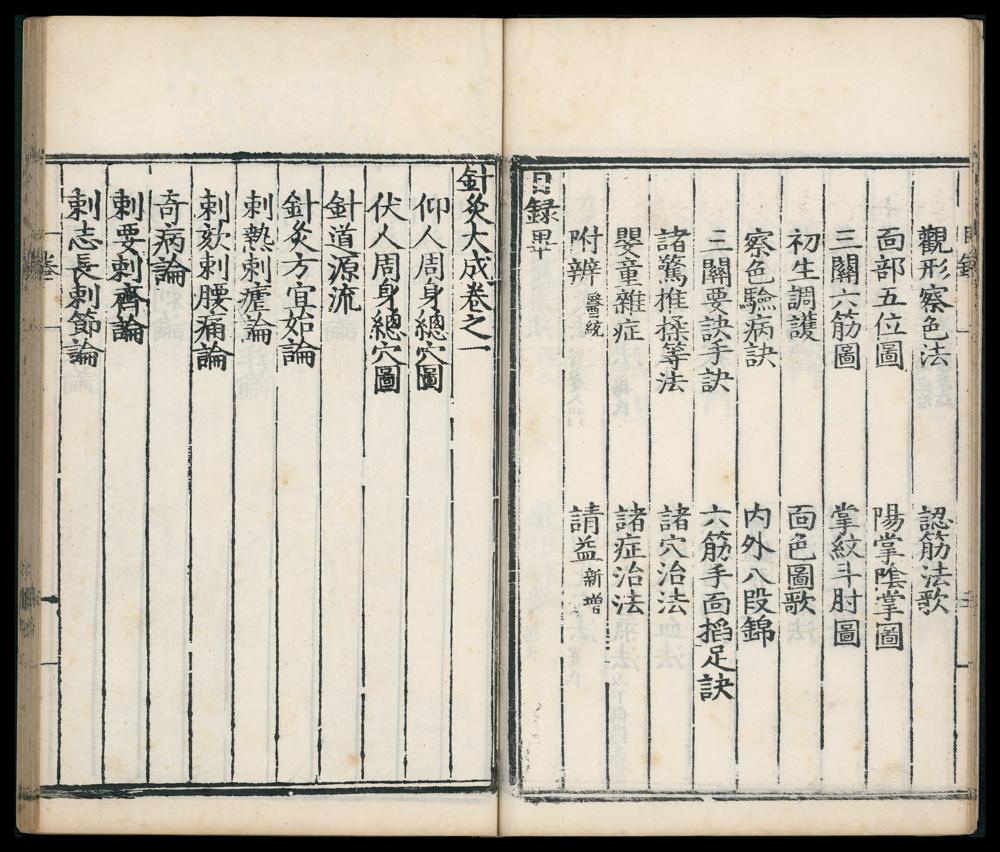 觀形察色法 認筋法歌
面部五位圖 陽掌隂掌圖
三關六筋圖 掌紋斗肘圖
初生調護 面色圖歌
察色驗病訣 内外八段錦
三關要訣手訣 六筋手面掐足訣
諸驚推揉等法 諸穴治法
嬰童雜症 諸症治法
附辨 醫統 請益 新增
目録畢
針灸大成卷之一
仰人周身總穴圖
伏人周身總穴圖
針道源流
針灸方宜茹論
刺熱刺瘧論
刺欬刺腰痛論
奇病論
刺要刺齊論
刺志長刺節論